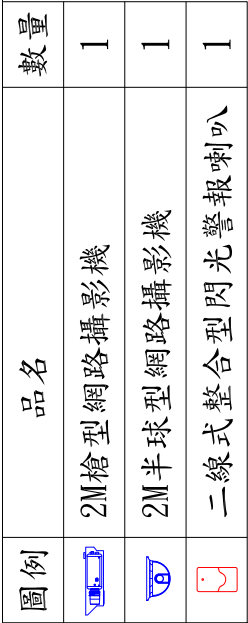 圖例 品名 數量
2M槍型網路攝影機 1
2M半球型網路攝影機 1
二線式整合型閃光警報喇叭 1